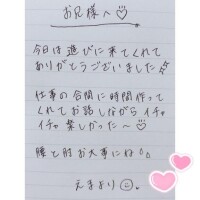 お兄様へ♡
今日は遊びに来てくれて
ありがとうございました☆
仕事の合間に時間作って
くれてお話しながら イチャ
イチャ楽しかった～♡
腰と肘お大事にね
えまより☺。